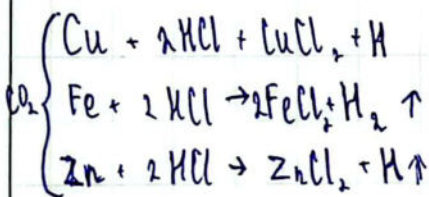 Cu + 2HCl + CuCl₂ + H
CO₂ { Fe + 2HCl → 2FeCl₂ + H₂ ↑
Zn + 2HCl → ZnCl₂ + H↑